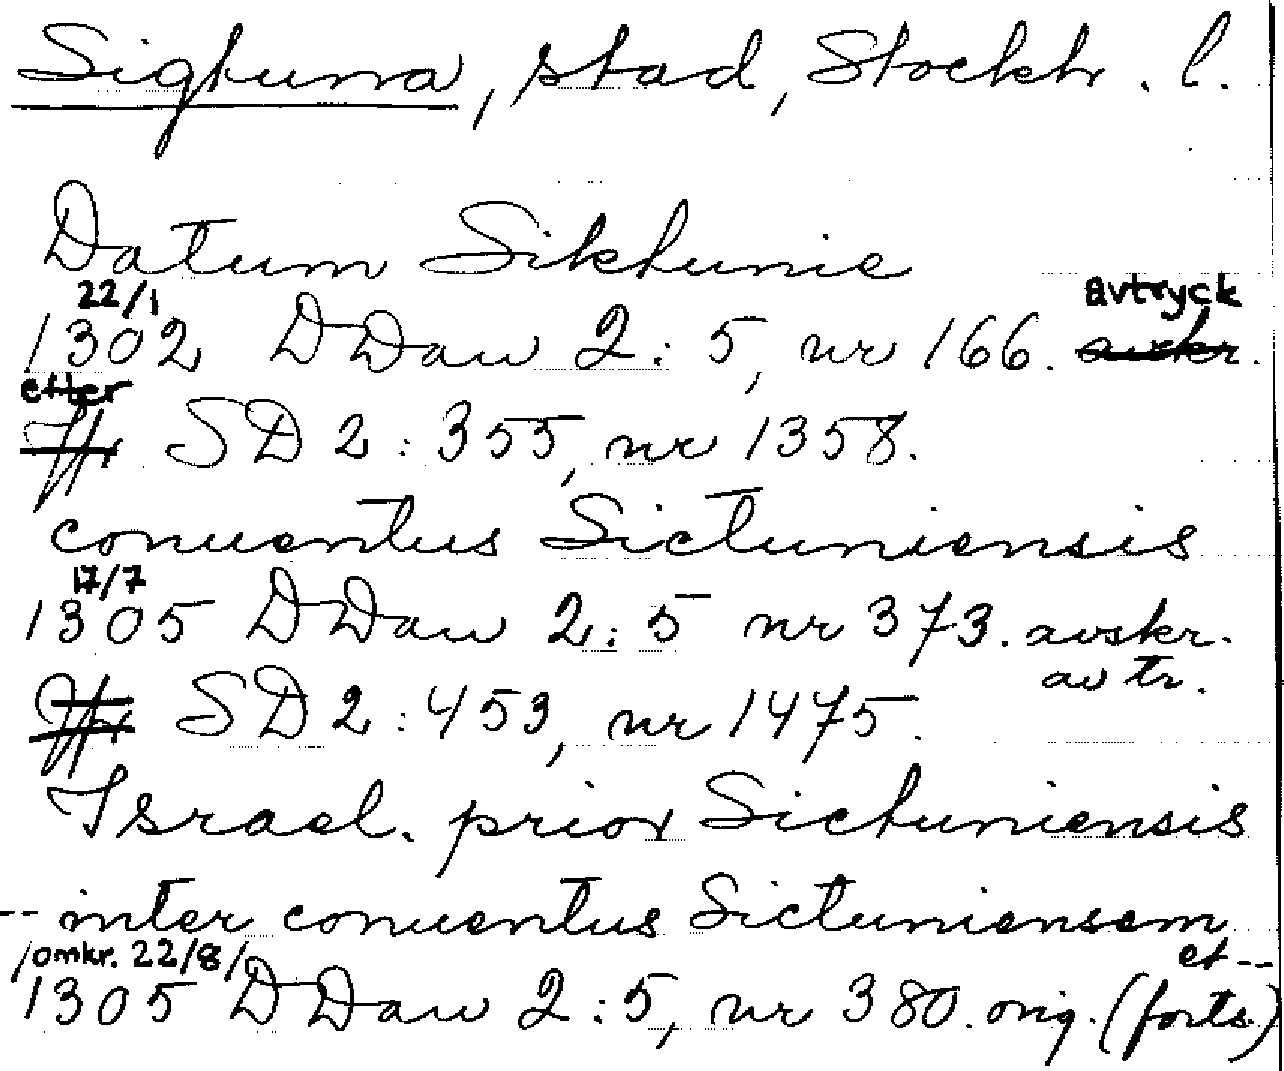 Sigtuna, stad, Stockh. l.
Datum Siktunie
22/1 avtryck
1302 DDan 2:5, nr 166. avskr.
efter
SD 2:355, nr 1358.
conuentus Sictuniensis
17/7
1305 DDan 2:5 nr 373. avskr.
av tr.
SD 2:453, nr 1475.
Israel. prior Sictuniensis
-- inter conuentus Sictuniensem
/omkr. 22/8/ et --
1305 DDan 2:5, nr 380. orig. (forts.)